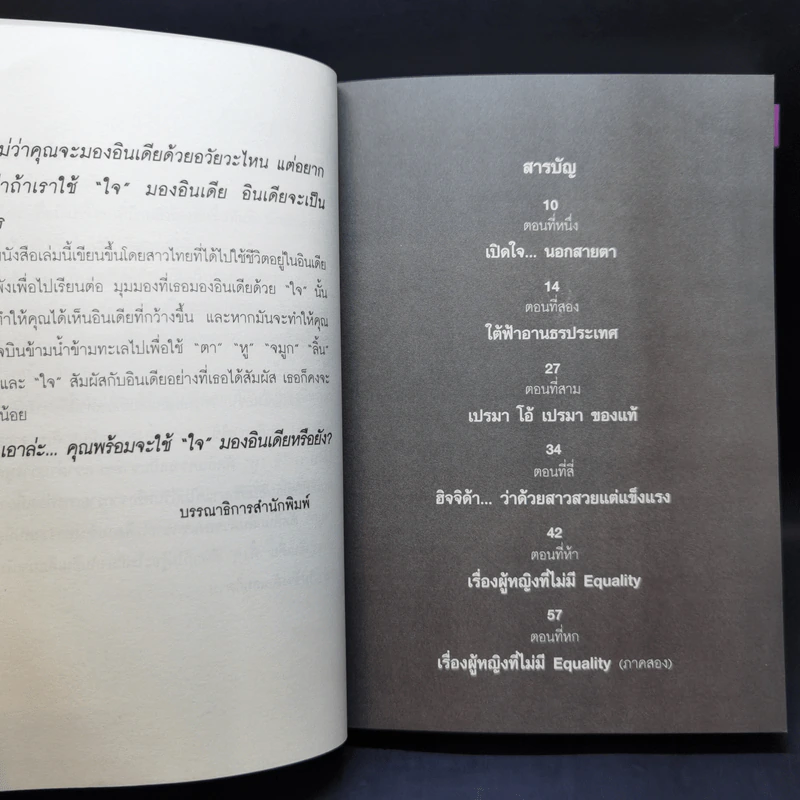 ไม่ว่าคุณจะมองอินเดียด้วยอวัยวะไหน แต่อยาก
ถ้าเราใช้ "ใจ" มองอินเดีย อินเดียจะเป็น
หนังสือเล่มนี้เขียนขึ้นโดยสาวไทยที่ได้ไปใช้ชีวิตอยู่ในอินเดีย
เพื่อไปเรียนต่อ มุมมองที่เธอมองอินเดียด้วย "ใจ" นั้น
ทำให้คุณได้เห็นอินเดียที่กว้างขึ้น และหากมันจะทำให้คุณ
บินข้ามน้ำข้ามทะเลไปเพื่อใช้ "ตา" "หู" "จมูก" "ลิ้น"
และ "ใจ" สัมผัสกับอินเดียอย่างที่เธอได้สัมผัส เธอก็คงจะ
น้อย
เอาล่ะ... คุณพร้อมจะใช้ "ใจ" มองอินเดียหรือยัง?
บรรณาธิการสำนักพิมพ์
สารบัญ
10
ตอนที่หนึ่ง
เปิดใจ... นอกสายตา
14
ตอนที่สอง
ใต้ฟ้าอานธรประเทศ
27
ตอนที่สาม
เปรมา โอ้ เปรมา ของแท้
34
ตอนที่สี่
ฮิจจิด้า... ว่าด้วยสาวสวยแต่แข็งแรง
42
ตอนที่ห้า
เรื่องผู้หญิงที่ไม่มี Equality
57
ตอนที่หก
เรื่องผู้หญิงที่ไม่มี Equality (ภาคสอง)